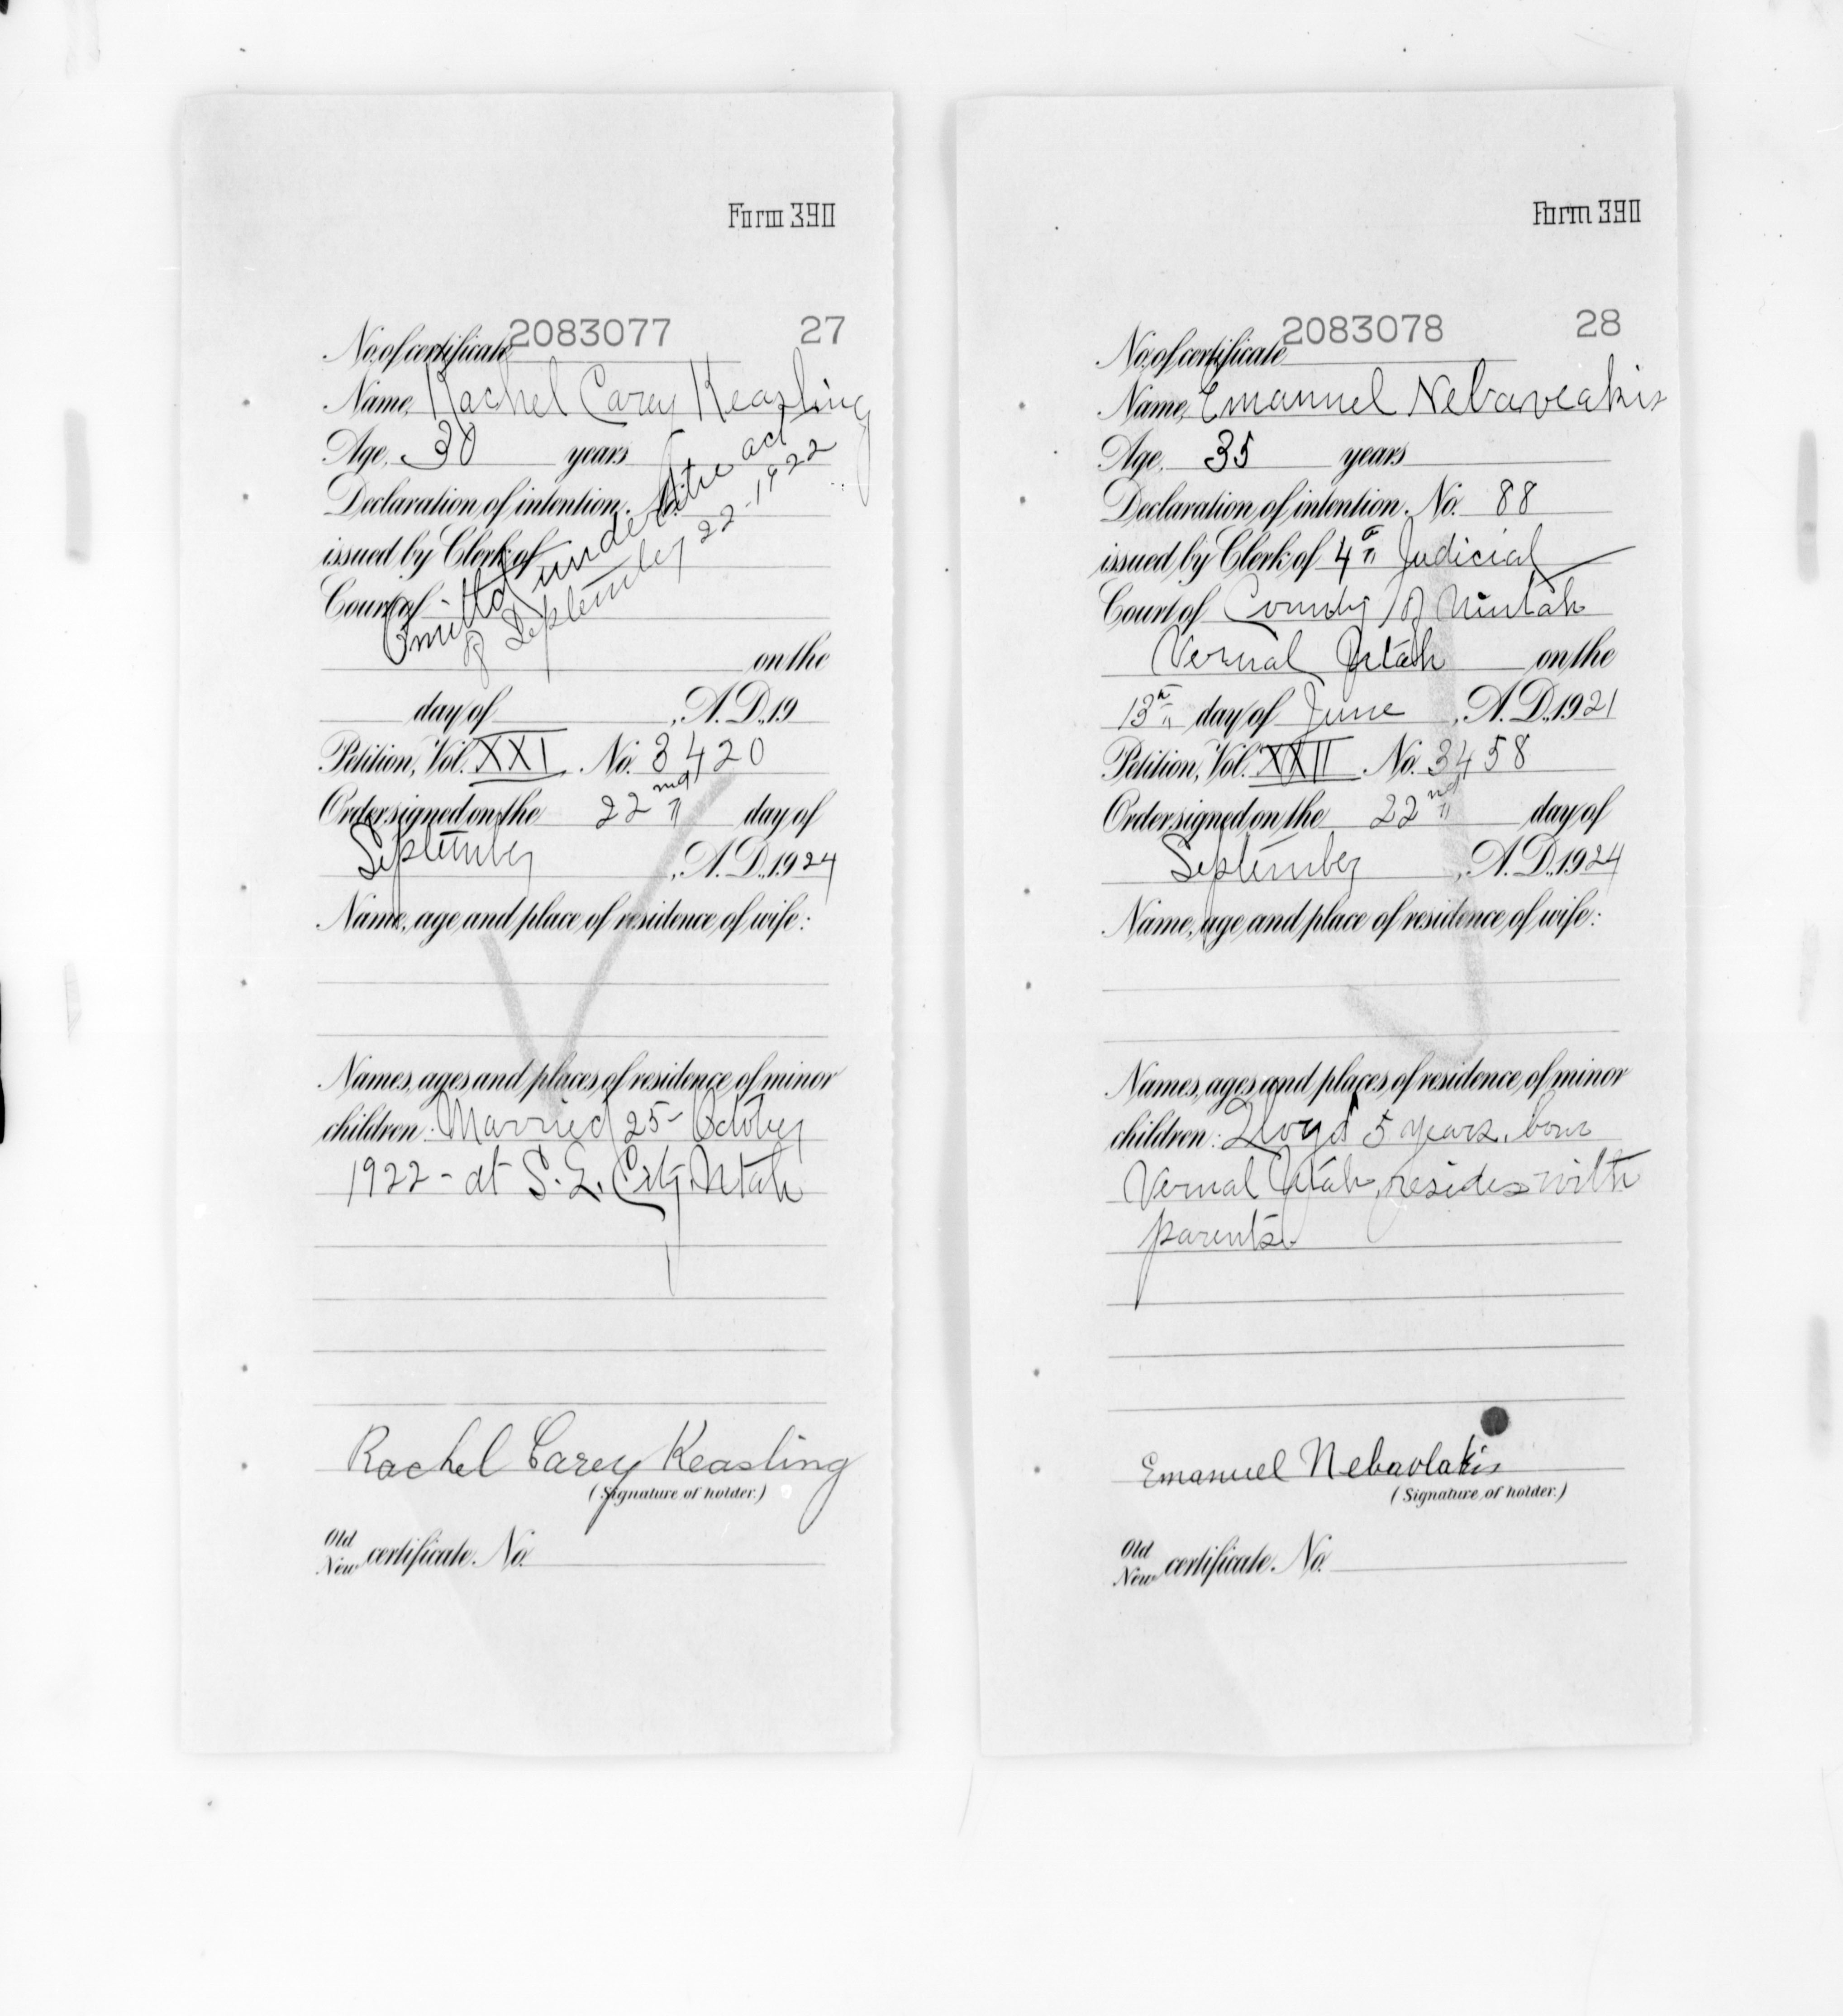 Form 390
2083077 27
No. of certificate
Name, Rachel Carey Keasling
Age, 30 years
Declaration of intention, No.
issued by Clerk of
Court of
Omitted under the act
of September 22-1922
on the
day of , A.D., 19
Petition, Vol. XXI, No. 3420
Order signed on the 22nd day of
September, A.D., 1924
Name, age and place of residence of wife:
Names, ages and places of residence of minor
children: Married 25- October
1922 - at S. L. City Utah
Rachel Carey Keasling
(Signature of holder.)
Old
New certificate No.
Form 390
2083078 28
No. of certificate
Name, Emanuel
Age, 35 years
Declaration of intention, No. 88
issued by Clerk of 4th Judicial
Court of County of Uintah
Vernal Utah on the
13th day of June, A.D., 1921
Petition, Vol. XXII, No. 3458
Order signed on the 22nd day of
September, A.D., 1924
Name, age and place of residence of wife:
Names, ages and places of residence of minor
children: Lloyd 5 years, born
Vernal Utah, resides with
parents
Emanuel Nebavlakis
(Signature of holder.)
Old
New certificate No.